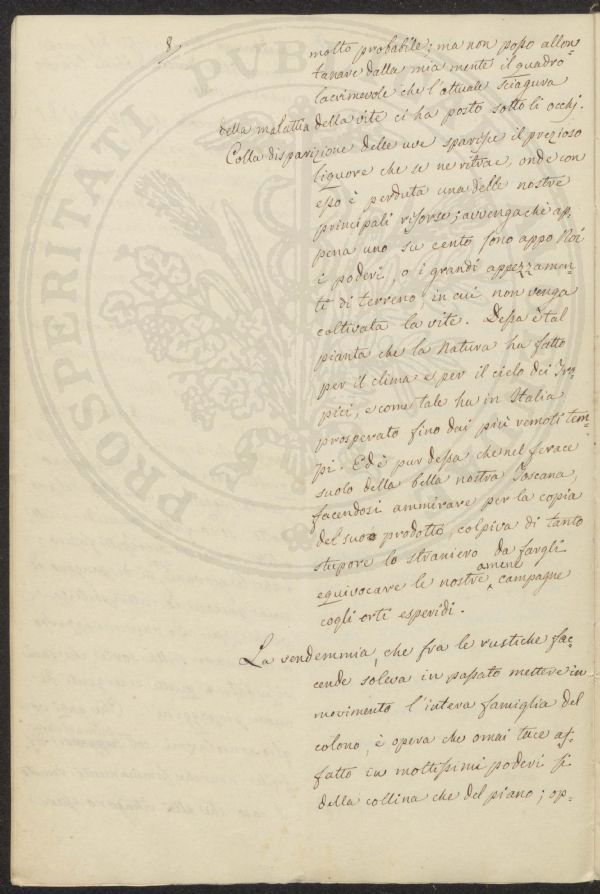 8.
molto probabile; ma non posso allon-
tanare dalla mia mente il quadro
lacrimevole che l'attuale sciagura
della malattia della vite ci ha posto sotto li occhj.
Colla disparizione delle uve sparisce il prezioso
liquore che se ne ritrae, onde con
esso è perduta una delle nostre
principali risorse; avvengachè ap-
pena uno su cento sono appo Noi
i poderi, o i grandi appezzamen-
ti di terreno in cui non venga
coltivata la vite. Dessa è tal
pianta che la Natura ha fatto
per il clima e per il cielo dei Tro-
pici, e come tale ha in Italia
prosperato fino dai più remoti tem-
pi. Ed è pur dessa che nel ferace
suolo della bella nostra Toscana,
facendosi ammirare per la copia
del suo prodotto, colpiva di tanto
stupore lo straniero da fargli
equivocare le nostre amene campagne
cogli orti esperidi.
La vendemmia, che fra le rustiche fac-
cende soleva in passato mettere in
movimento l'intera famiglia del
colono, è opera che omai tace af-
fatto in moltissimi poderi sì
della collina che del piano; op-
PROSPERITATI PVBL